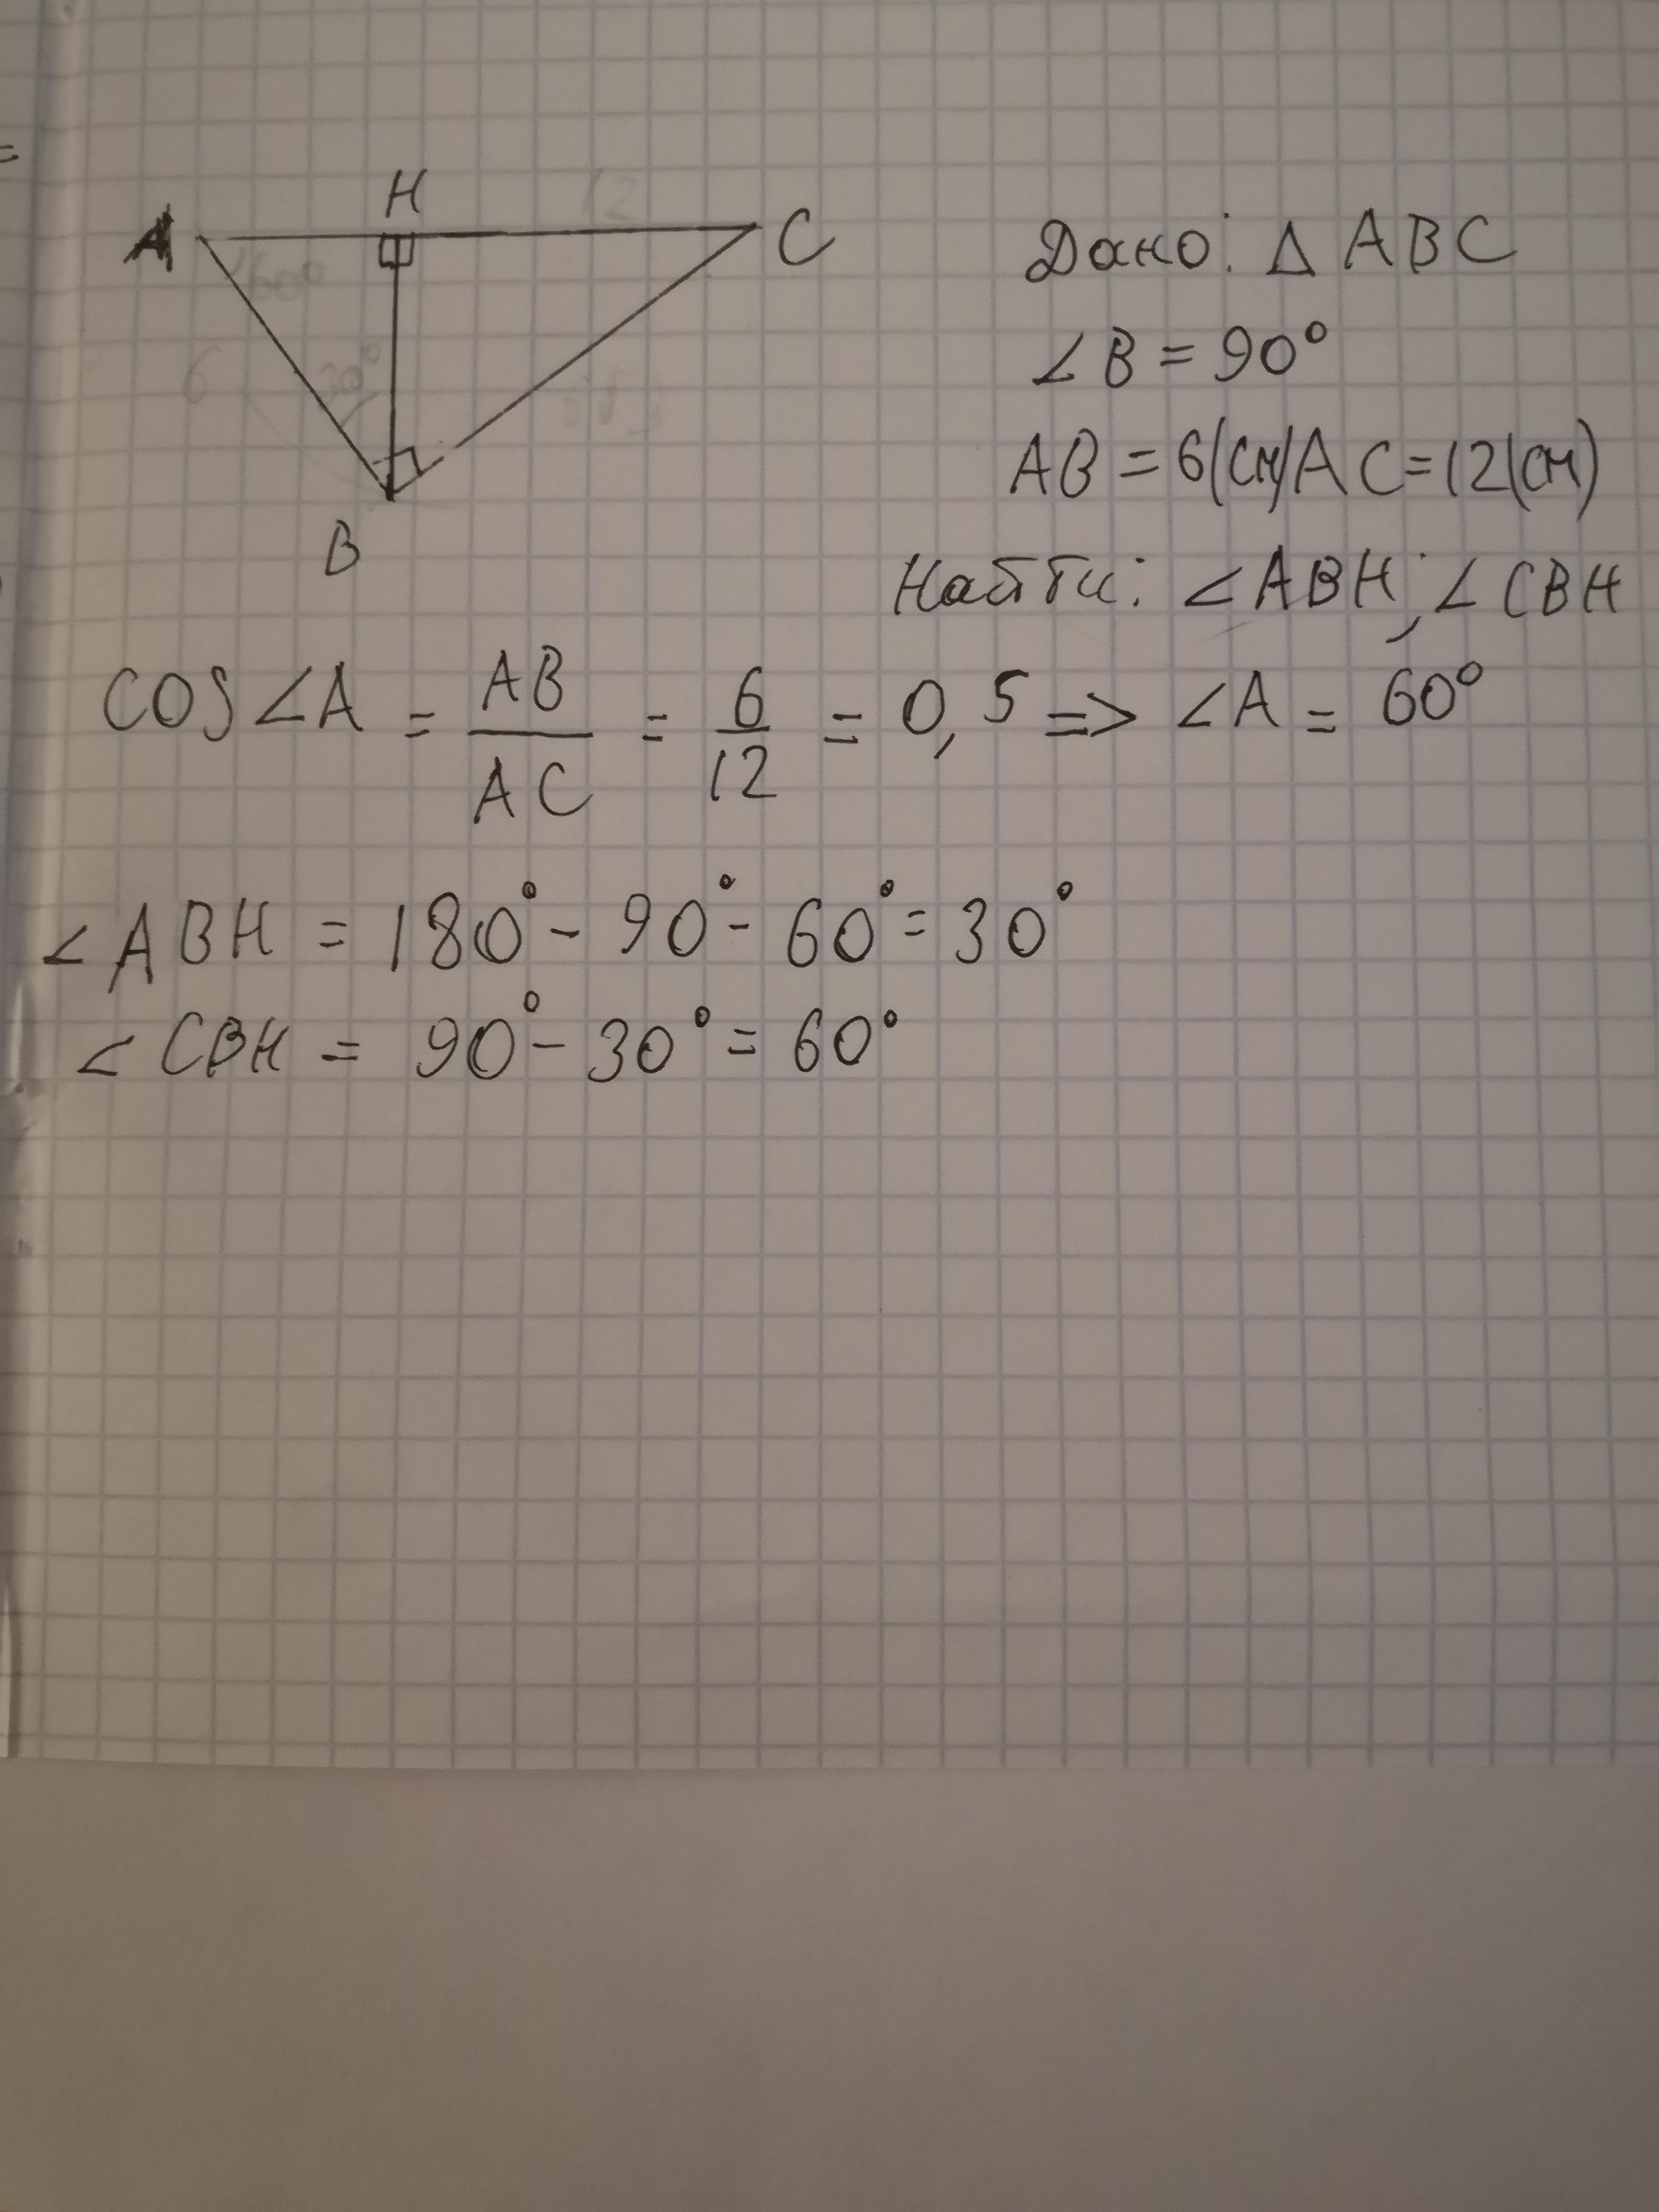 H
12
A
C
60°
6
30°
B
Дано: Δ ABC
∠B = 90°
AB = 6(см) AC = 12(см)
Найти: ∠ABH; ∠CBH
COS∠A = AB/AC = 6/12 = 0,5 => ∠A = 60°
∠ABH = 180° - 90° - 60° = 30°
∠CBH = 90° - 30° = 60°